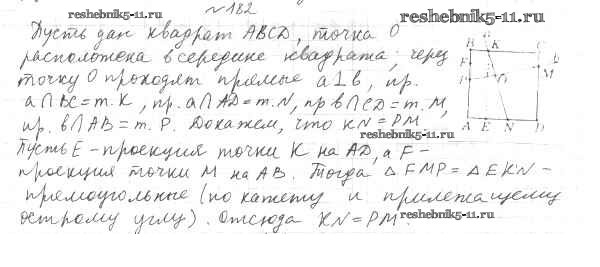 №182
reshebnik5-11.ru
Пусть дан квадрат ABCD, точка O
расположена в середине квадрата, через
точку O проходят прямые a⊥b, пр.
a∩BC=т.K, пр. a∩AD=т.N, пр b∩CD=т.M,
пр. b∩AB=т.P. Докажем, что KN=PM.
reshebnik5-11.ru
Пусть E - проекция точки K на AD, а F-
проекция точки M на AB. Тогда △FMP=△EKN-
прямоугольные (по катету и прилежащему
острому углу). Отсюда KN=PM.
reshebnik5-11.ru
reshebnik5-11.ru
B K C
F M
P
A E N D